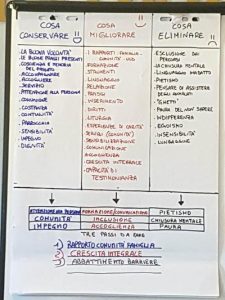 COSA CONSERVARE
LA BUONA VOLONTÀ
LE BUONE PRASSI PRESENTI
COSCIENZA E MEMORIA
DEL PASSATO
ACCOMPAGNARE
ACCOGLIERE
SERVIZIO
ATTENZIONE ALLA PERSONA
COMUNIONE
COSTANZA
CONTINUITÀ
PARROCCHIA
SENSIBILITÀ
IMPEGNO
DIGNITÀ
COSA MIGLIORARE
I RAPPORTI FAMIGLIA -
COMUNITÀ
FORMAZIONE
STRUMENTI
LINGUAGGIO
RELAZIONE
PRASSI
INSERIMENTO
DIRITTI
LITURGIA
ESPERIENZE DI CARITÀ
SENSO (COMUNITÀ)
SENSIBILIZZAZIONE
COMUNICAZIONE
ACCOGLIENZA
CRESCITA INTEGRALE
CAPACITÀ DI
TESTIMONIANZA
COSA ELIMINARE
ESCLUSIONE DAI
PERCORSI
LA CHIUSURA MENTALE
LINGUAGGIO INADATTO
PIETISMO
PENSARE DI ASSISTERE
DEGLI AMMALATI
"GHETTI"
PAURA DEL NON SAPERE
INDIFFERENZA
EGOISMO
INSENSIBILITÀ
ATTENZIONE ALLA PERSONA FORMAZIONE/COMUNICAZIONE PIETISMO
COMUNITÀ INCLUSIONE CHIUSURA MENTALE
IMPEGNO ACCOGLIENZA PAURA
TRE PASSI DA FARE
1) RAPPORTO COMUNITÀ FAMIGLIA
2) CRESCITA INTEGRALE
3) ABBATTIMENTO BARRIERE